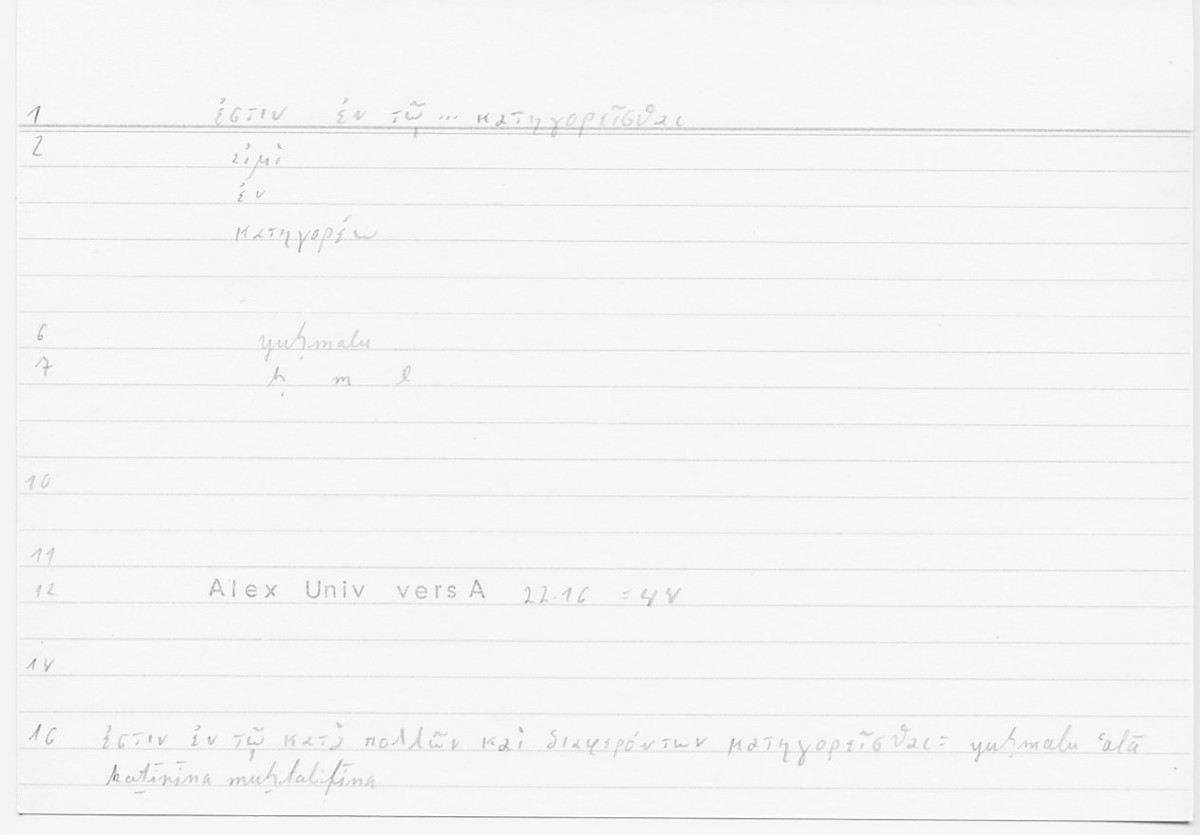 1 ἐστιν ἐν τῷ ... κατηγορεῖσθαι
2 εἰμὶ
ἐν
κατηγορέω
6 yuḥmalu
7 ḥ m l
10
11
12 Alex Univ vers A 22.16 = 48
14
16 ἐστιν ἐν τῷ κατὰ πολλῶν καὶ διαφερόντων κατηγορεῖσθαι = yuḥmalu ʿalā
kaṯīrīna muḫtalifīna